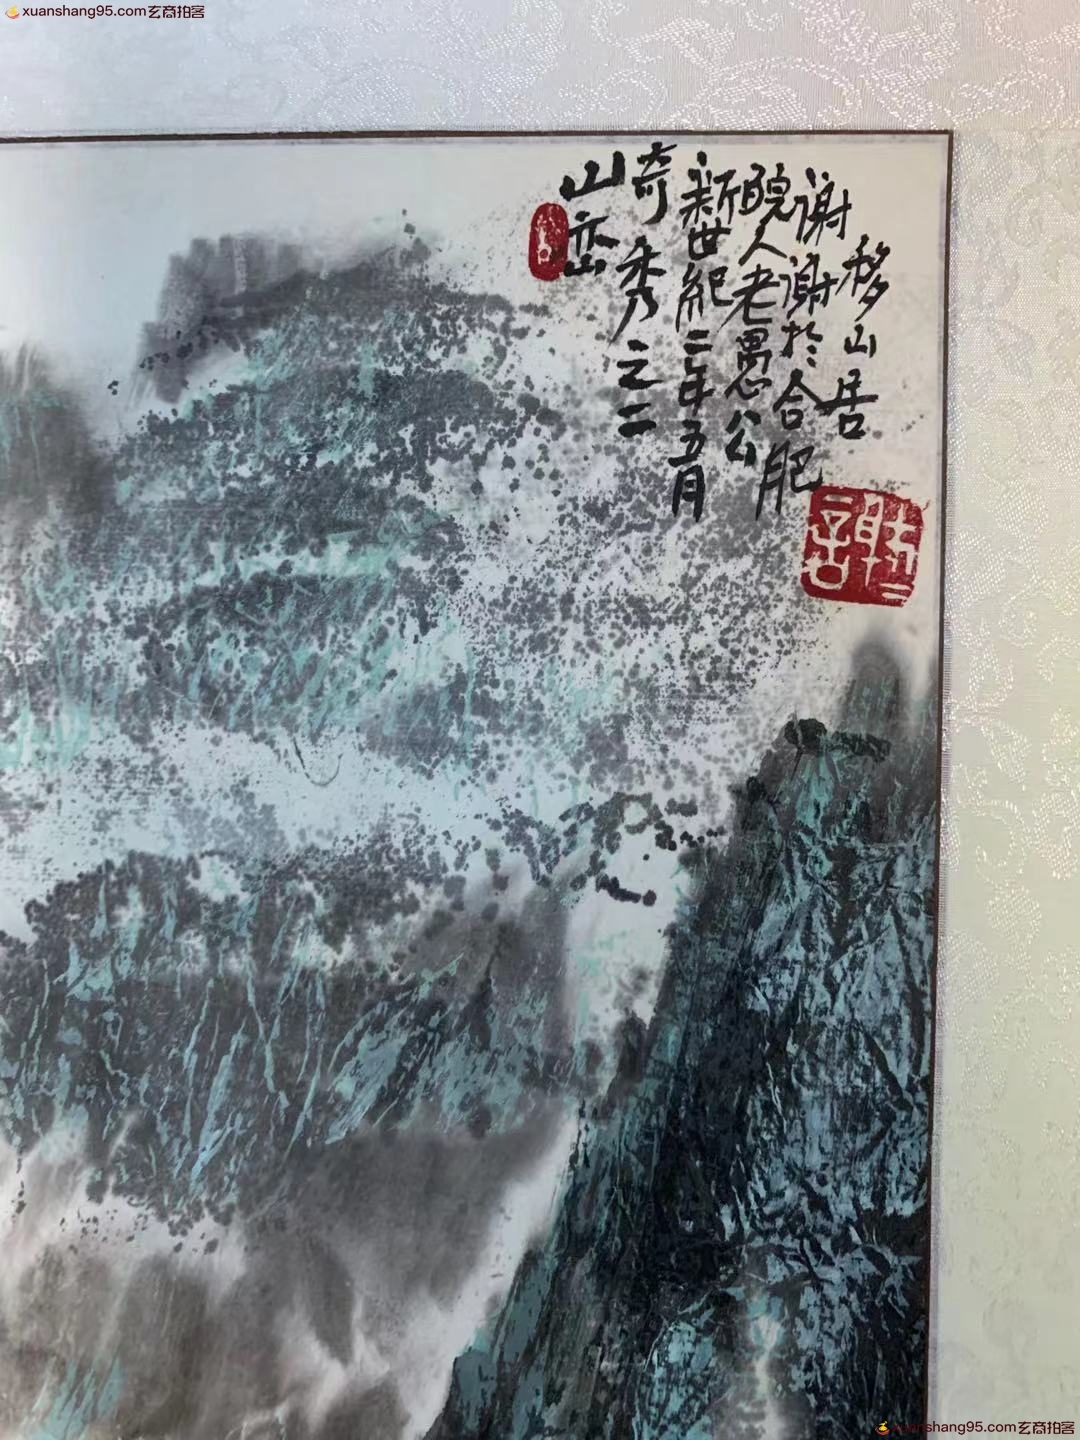 xuanshang95.com玄商拍客
山峦
奇秀之二
新世紀二年五月
皖人老愚公
谢谢於合肥
移山居
xuanshang95.com玄商拍客